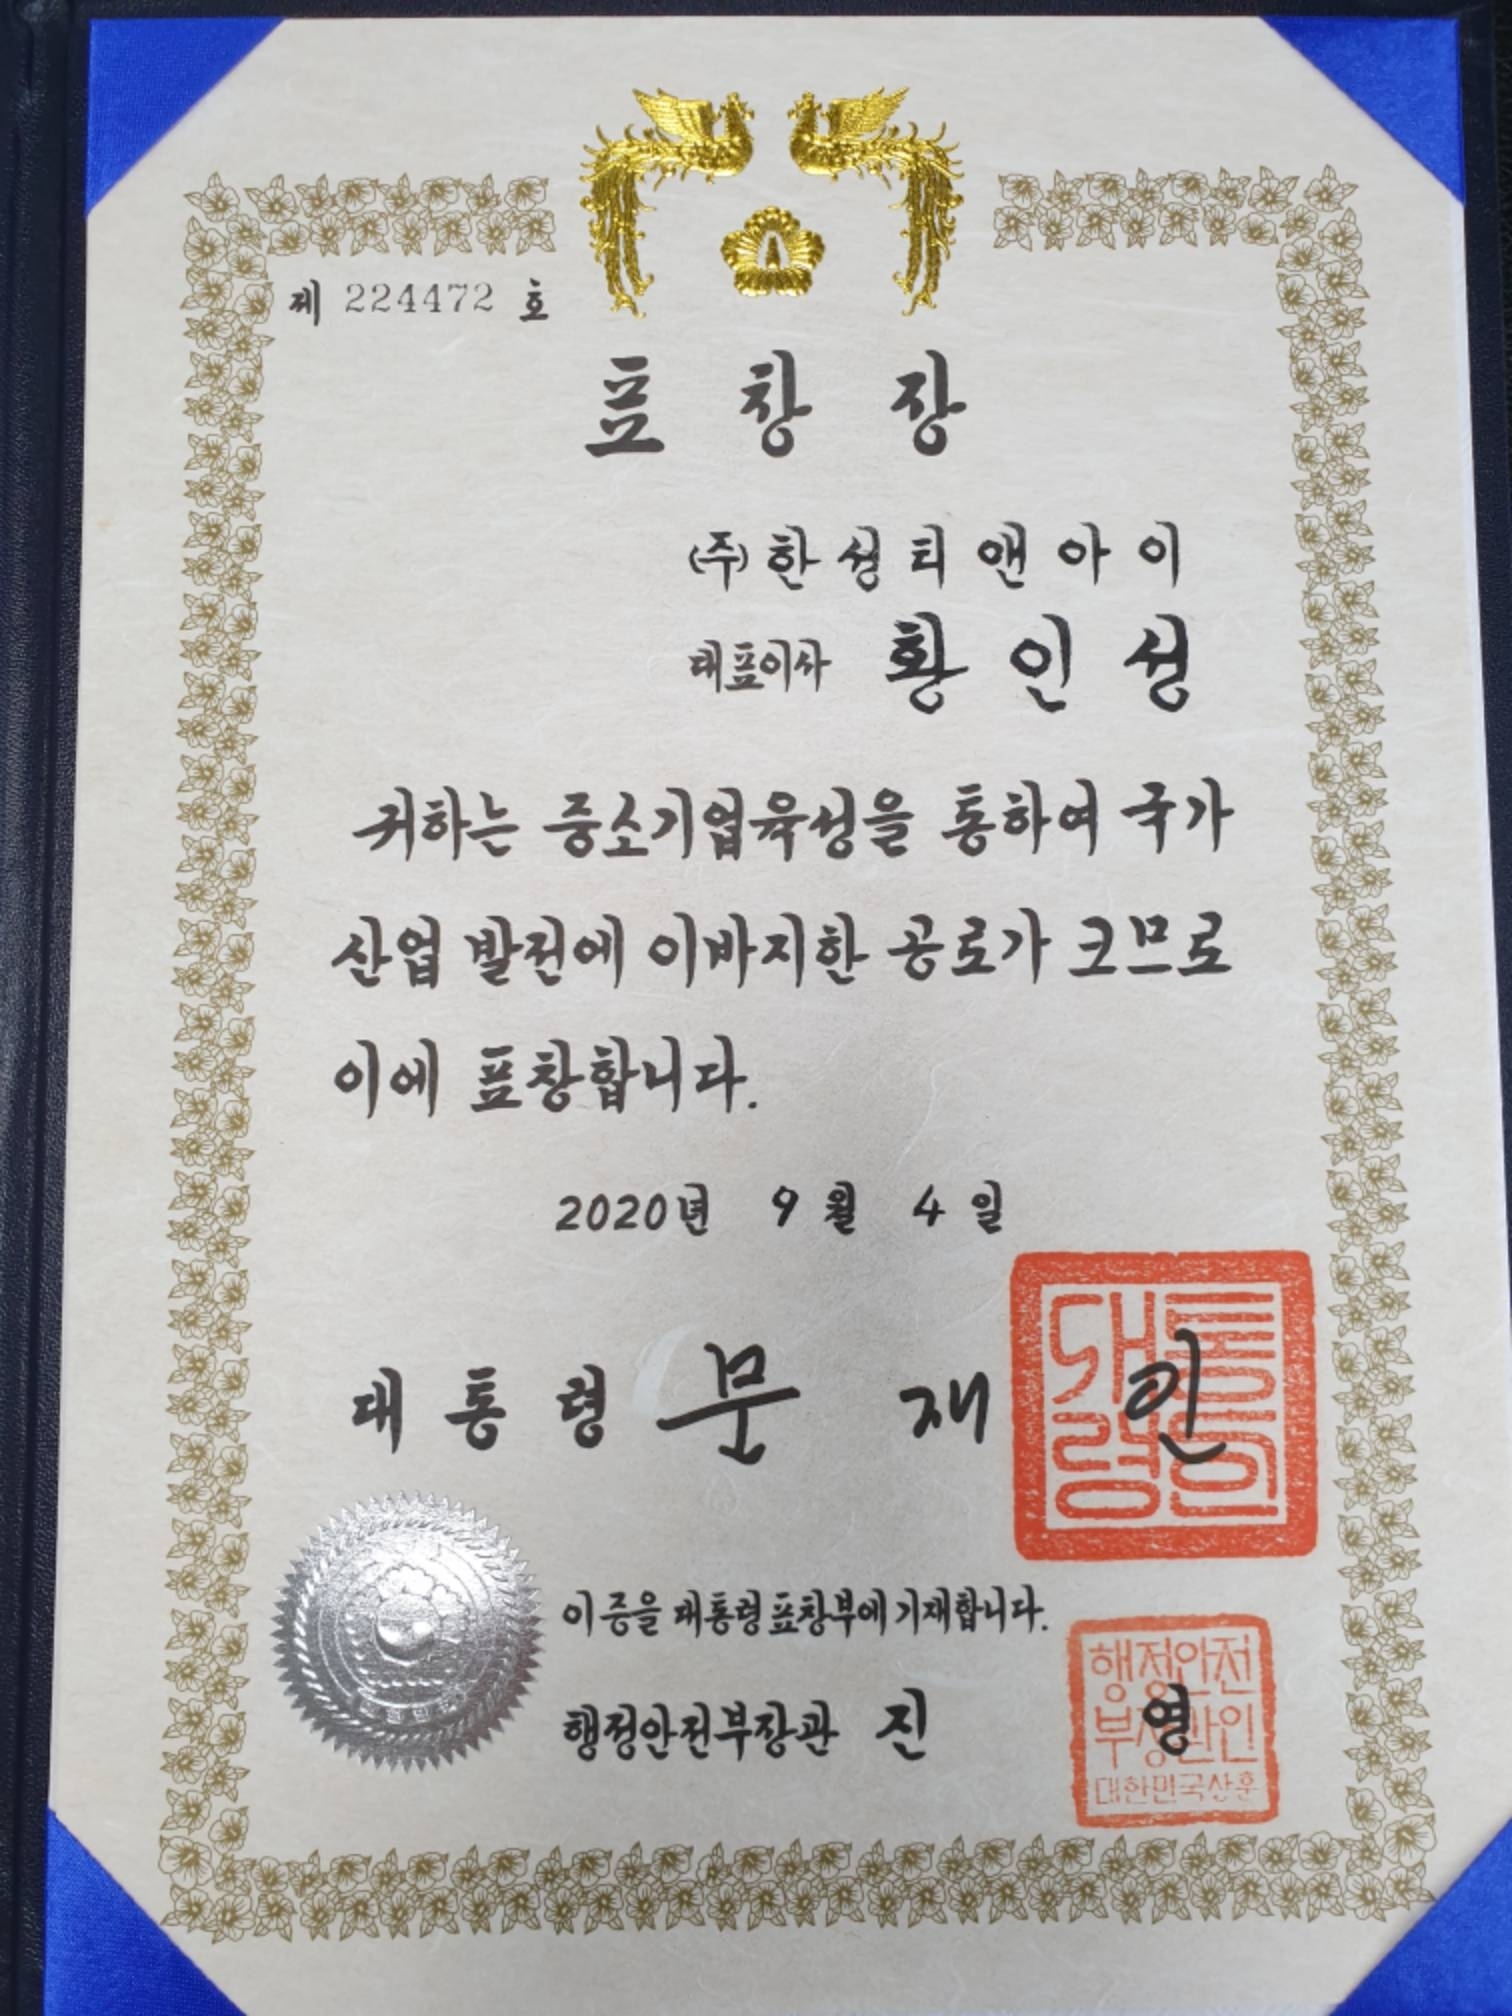 제 224472 호
표 창 장
(주) 한 성 티 앤 아 이
대표이사 황 인 성
귀하는 중소기업육성을 통하여 국가
산업 발전에 이바지한 공로가 크므로
이에 표창합니다.
2020년 9 월 4 일
대 통 령 문 재 인
대통
령인
이 증을 대통령표창부에 기재합니다.
행정안전부장관 진 영
행정안전
부장관인
대한민국상훈